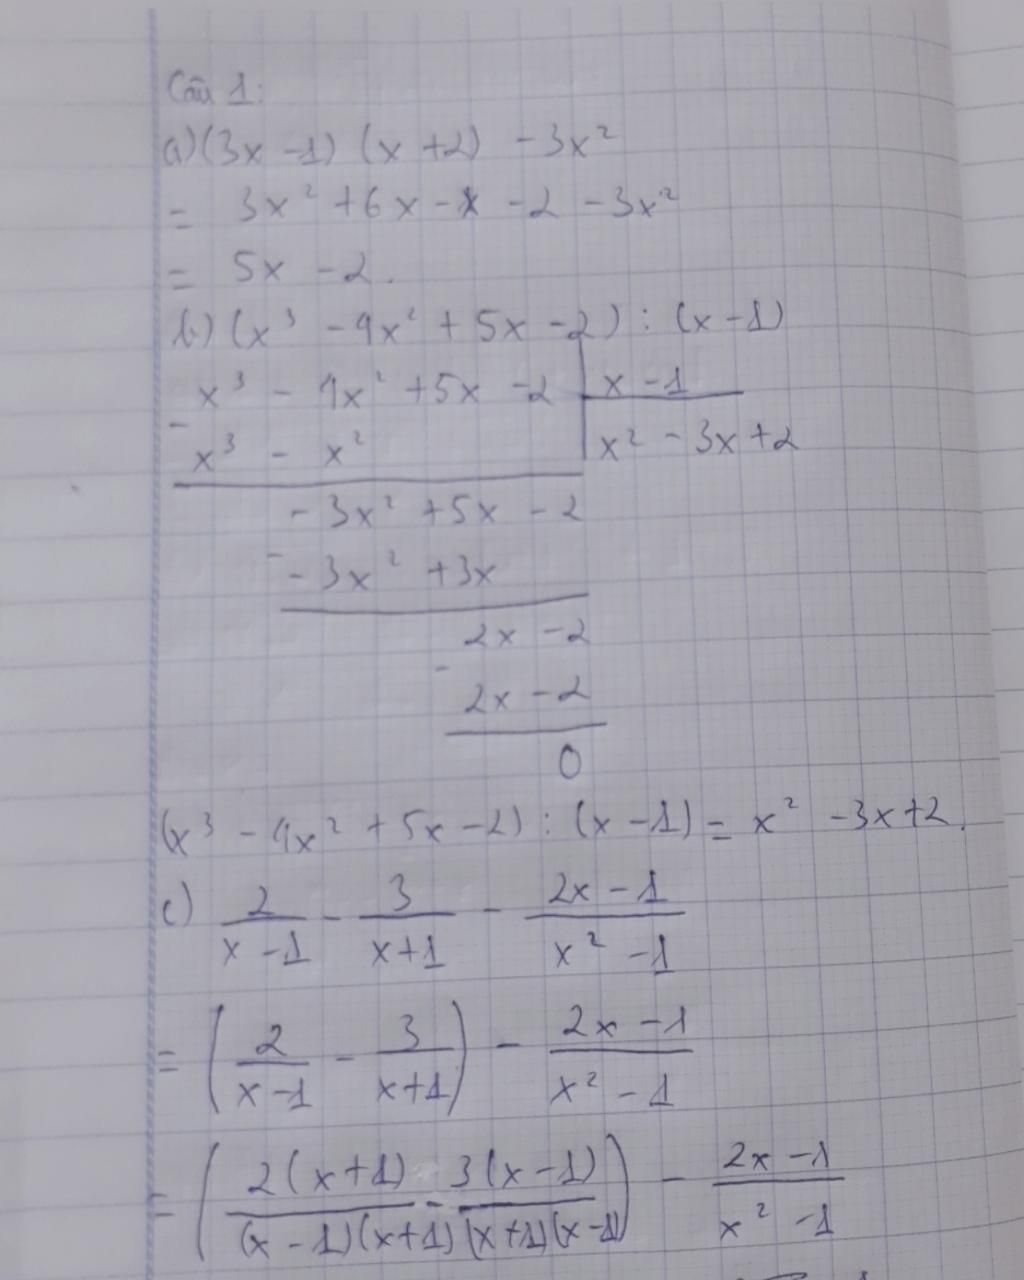 Câu 1:
a) (3x - 1) (x + 2) - 3x²
= 3x² + 6x - x - 2 - 3x²
= 5x - 2.
b) (x³ - 4x² + 5x - 2) : (x - 1)
x³ - 4x² + 5x - 2 | x - 1
- x³ - x² | x² - 3x + 2
- 3x² + 5x - 2
- - 3x² + 3x
2x - 2
- 2x - 2
0
(x³ - 4x² + 5x - 2) : (x - 1) = x² - 3x + 2.
c) 2/(x - 1) - 3/(x + 1) - (2x - 1)/(x² - 1)
= (2/(x - 1) - 3/(x + 1)) - (2x - 1)/(x² - 1)
= (2(x + 1)/((x - 1)(x + 1)) - 3(x - 1)/((x + 1)(x - 1))) - (2x - 1)/(x² - 1)